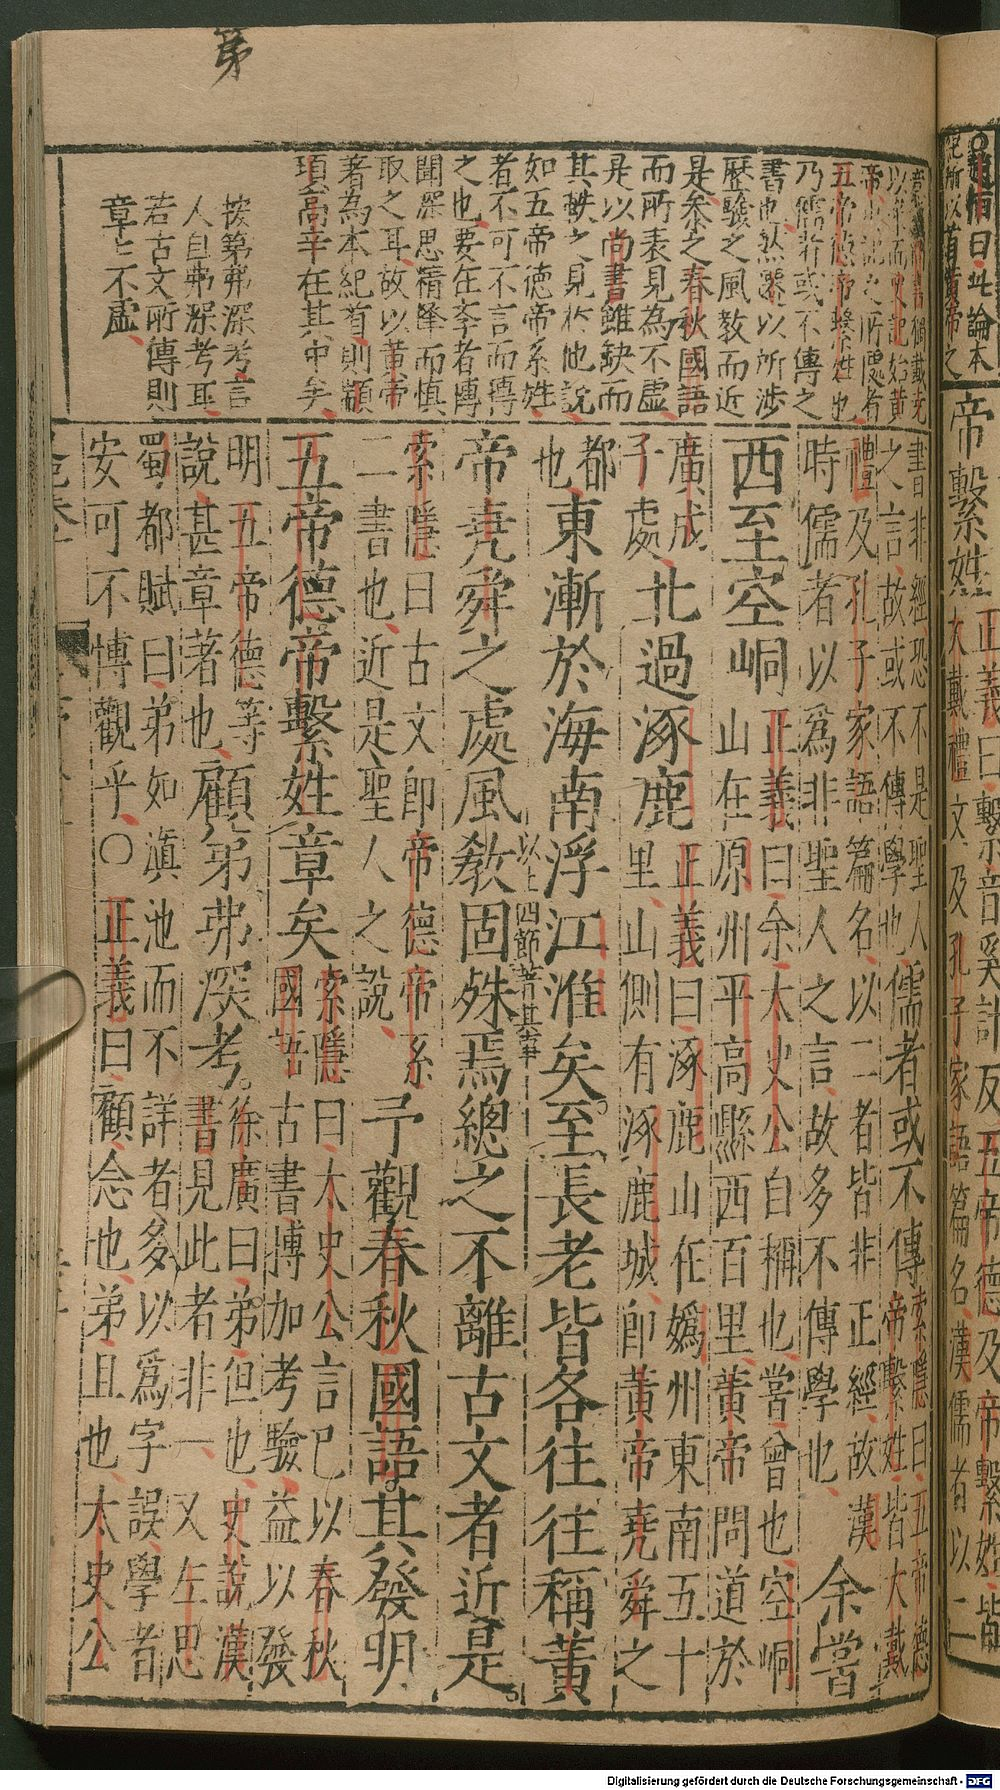 ○趙恒曰此論本
紀所以首黃帝之
帝繫姓
正義曰繫音奚計反五帝德及帝繫姓皆
大戴禮文及孔子家語篇名漢儒者以二
第
書稱載堯
以來而史記始黃
帝史記之所憑者
五帝德帝繫姓也
乃儒者或不傳之
書也然嘗以所涉
歷驗之風教而近
是參之春秋國語
而所表見為不虛
是以尚書雖缺而
其軼之見於他說
如五帝德帝系姓
者不可不言而擇
之也要在學者博
聞深思精擇而慎
取之耳故以黃帝
著為本紀首則顓
頊高辛在其中矣
按第弗深考言
人自弗深考耳
若古文所傳則
章章不虛
書非經恐不是聖人
之言故或不傳學也
儒者或不傳
索隱曰五帝德
帝繫姓皆大戴
禮及孔子家語篇名以二者皆非正經故漢
時儒者以爲非聖人之言故多不傳學也
余嘗
西至空峒
正義曰余太史公自稱也嘗曾也空峒
山在原州平高縣西百里黃帝問道於
廣成
子處
北過涿鹿
正義曰涿鹿山在嬀州東南五十
里山側有涿鹿城即黃帝堯舜之
都
也
東漸於海南浮江淮矣至長老皆各往往稱黃
以上四節著其事
帝堯舜之處風教固殊焉總之不離古文者近是
索隱曰古文即帝德帝系
二書也近是聖人之說
予觀春秋國語其發明
五帝德帝繫姓章矣
索隱曰太史公言已以春秋
國語古書博加考驗益以發
明五帝德等
說甚章著也
顧第弗深考
徐廣曰弟但也史說漢
書見此者非一又左思
蜀都賦曰弟如滇池而不詳者多以爲字誤學者
安可不博觀乎○正義曰顧念也弟且也太史公
Digitalisierung gefördert durch die Deutsche Forschungsgemeinschaft - DFG